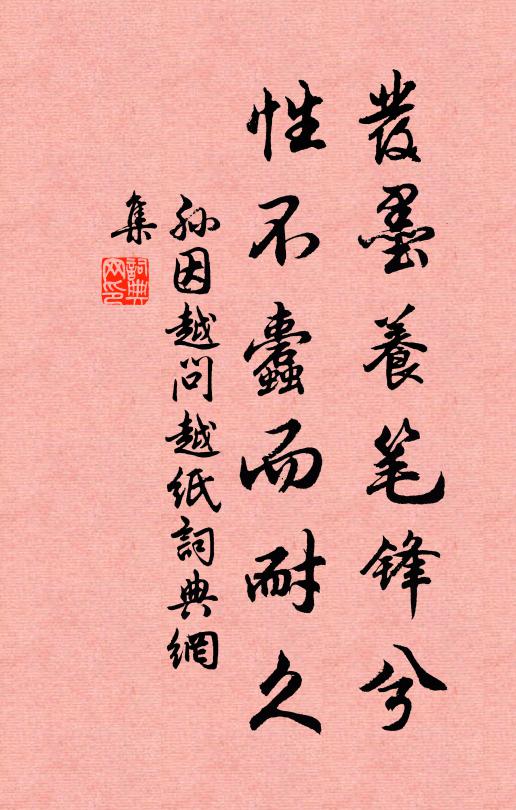 發墨養笔锋兮
性不蠹而耐久
孙因越问越紙詞典網
集
詞典
网印